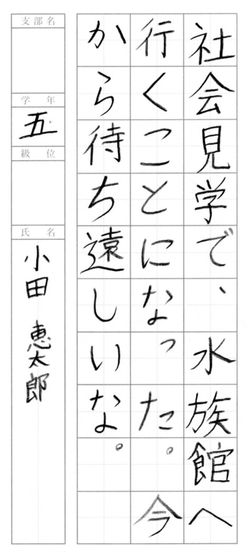 社会見学で、水族館へ
行くことになった。今
から待ち遠しいな。
支部名
学年
五
級位
氏名
小田 恵太郎